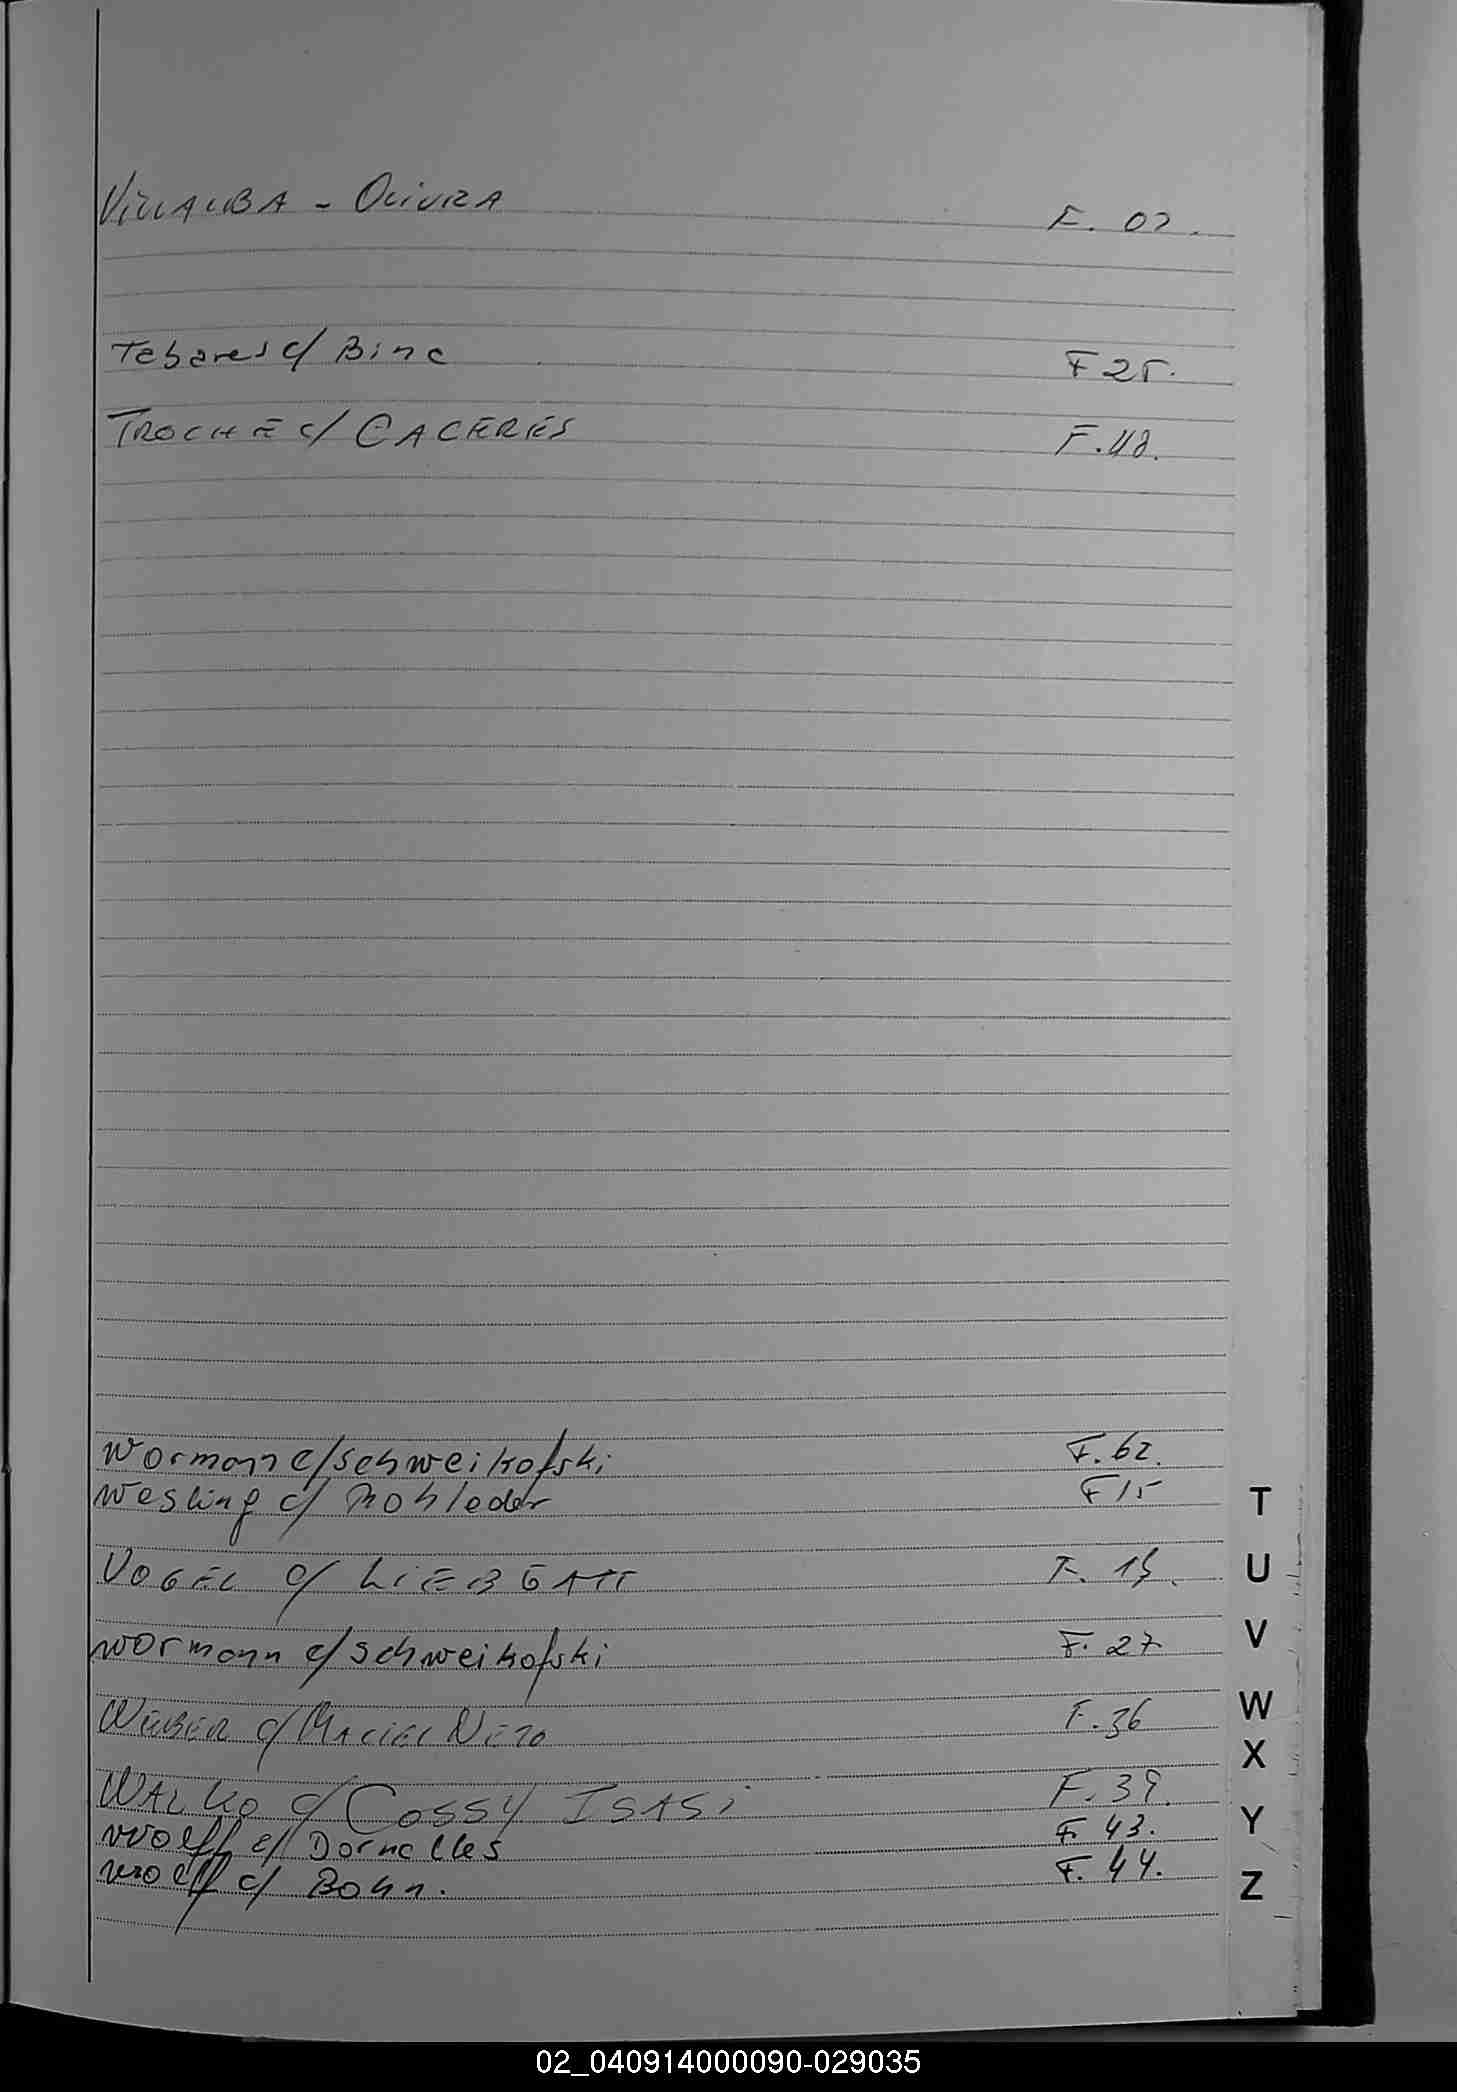 VILLALBA - OLIVERA F. 02.
Tabares c/ Bine F 25.
TROCHE c/ CACERES F.48.
Wormann c/ Schweikofski F.62.
Wesling c/ Rohleder F 15
VOGEL c/ LIEBGATT F. 19.
Wormann c/ Schweikofski F. 27
WEBER c/ MACIEL NETO F.36
WALKO c/ COSSY ISASI F.39.
Wolff c/ Dornelles F. 43.
Wolff c/ Bohn. F. 44.
T
U
V
W
X
Y
Z
02_040914000090-029035